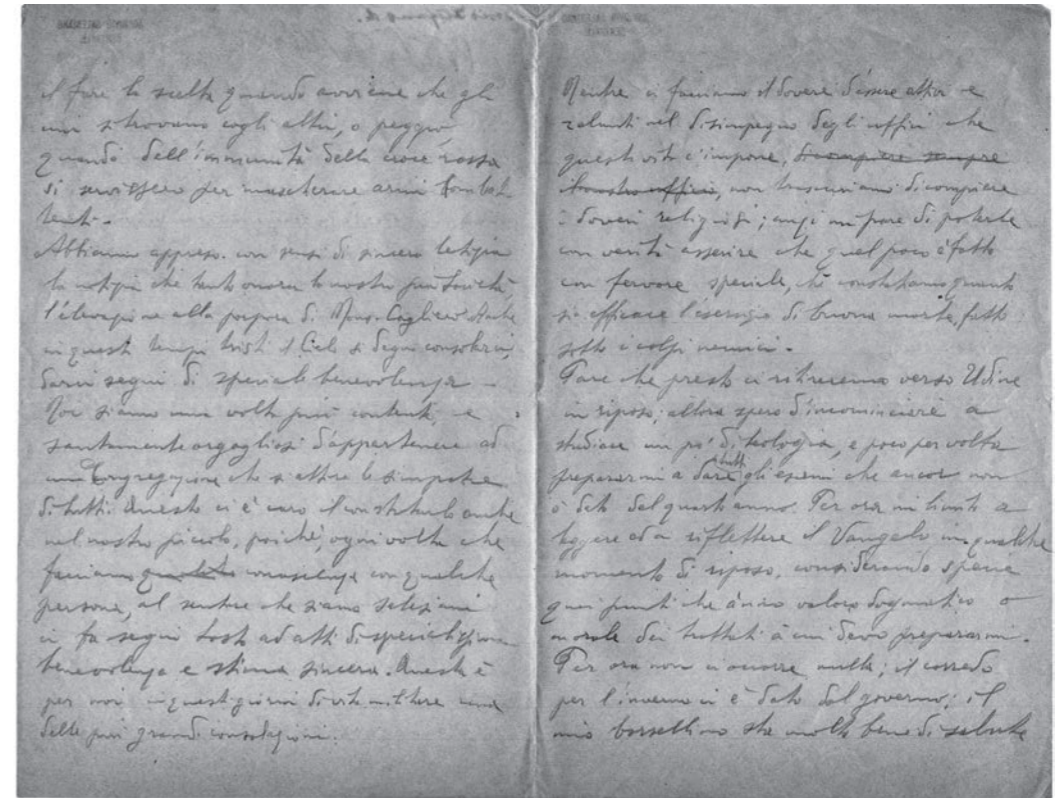 il fare la scelta quando avviene che gli
uni si trovano cogli altri, o peggio,
quando dell'immunità della croce rossa
si servissero per mascherare armi combat
tenti.
Abbiamo appreso con sensi di sincera letizia
la notizia che tanto onora la nostra pia Società,
l'elevazione alla porpora di Mons. Cagliero. Anche
in questi tempi tristi il Cielo si degni consolarci,
darci segni di speciale benevolenza.
Noi siamo una volta più contenti, e
santamente orgogliosi d'appartenere ad
una Congregazione che si attira le simpatie
di tutti. Questo ci è caro il constatarlo anche
nel nostro piccolo, poichè, ogni volta che
facciamo conoscenza con qualche
persona, al sentire che siamo salesiani
ci fa segni tosto ad atti di specialissima
benevolenza e stima sincera. Questa è
per noi in questi giorni di vita militare una
delle più grandi consolazioni.
Mentre ci facciamo il dovere d'essere attivi e
zelanti nel disimpegno degli uffici che
questa vita c'impone, di compiere sempre
il nostro ufficio, non trascuriamo di compiere
i doveri religiosi; anzi mi pare di poterle
con verità asserire che quel poco è fatto
con fervore speciale, chè constatiamo quanto
sia efficace l'esercizio di buona morte, fatto
sotto i colpi nemici.
Pare che presto ci ritireremo verso Udine
in riposo; allora spero d'incominciare a
studiare un po' di teologia, e poco per volta
prepararmi a dare tutti gli esami che ancor non
ò dato del quarto anno. Per ora mi limito a
leggere ed a riflettere il Vangelo in qualche
momento di riposo, considerando specie
quei punti che ànno valore dogmatico o
morale dei trattati a cui devo prepararmi.
Per ora non ci occorre nulla; il corredo
per l'inverno ci è dato dal governo; il
mio borsellino sta molto bene di salute